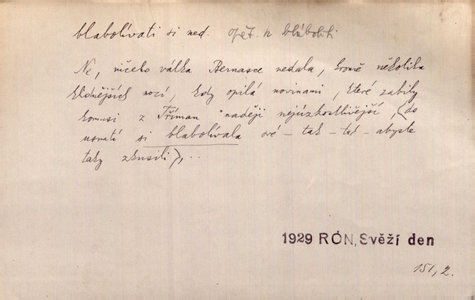 blabolívati si ned. opět. k blábolit
Ne, ničeho válka Bernasce nedala, kromě několika
kladnějších nocí, kdy opilá novinami, které zabily
komusi z Říman naději nejúzkostlivější, (do
usnutí si blabolívala ově – tak – teď – abyste
taky zkusili), ...
1929 RÓN, Svěží den
151, 2.